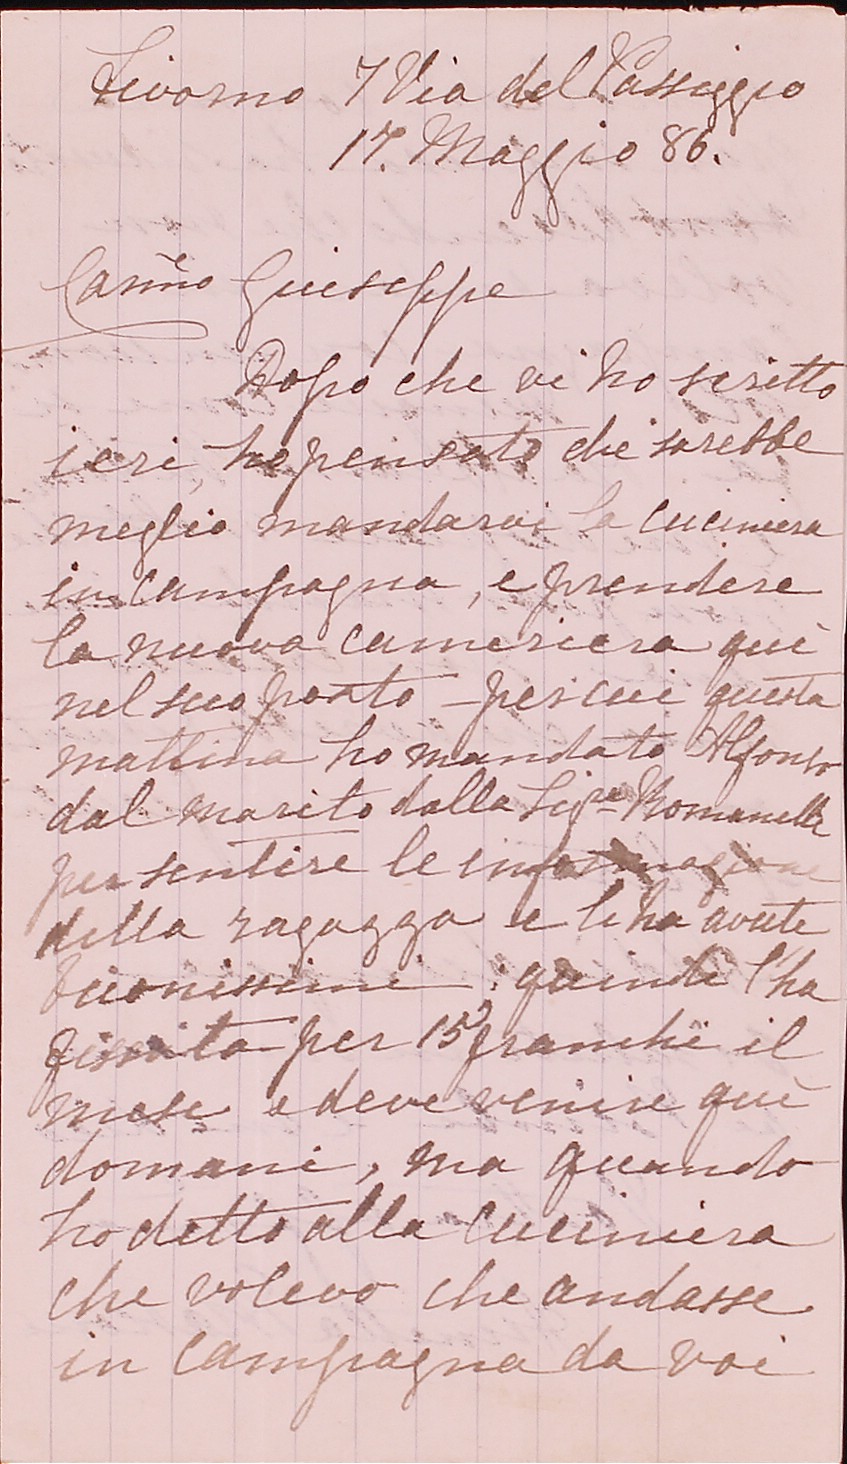 Livorno 7 Via del Passeggio
17. Maggio 86.
Carimo Giuseppe
Dopo che vi ho scritto
ieri, ho pensato che sarebbe
meglio mandarvi la cuciniera
in campagna, e prendere
la nuova cameriera quì
nel suo posto – per cui questa
mattina ho mandato Alfonso
dal marito dalla Sigra Romanelli
per sentire le informazione
della ragazza e le ha avute
buonissime; quindi l'ha
fissata per 15 franchi il
mese e deve venire quì
domani, ma quando
ho detto alla cuciniera
che volevo che andasse
in campagna da voi